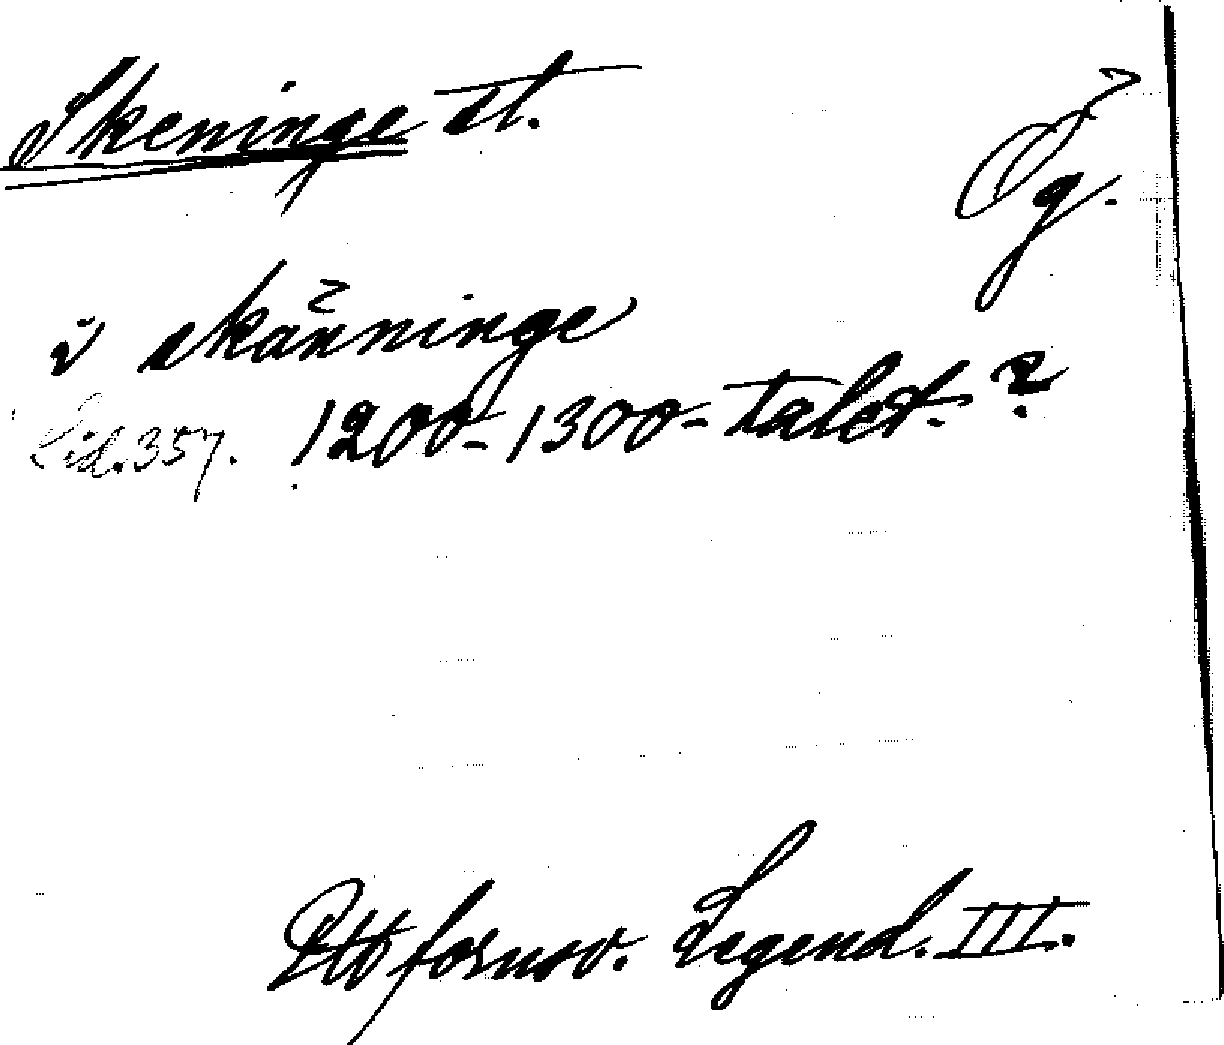 Skeninge st. Ög.
i skänninge
Sid. 357. 1200-1300-talet. ?
Ett fornsv. Legend. III.